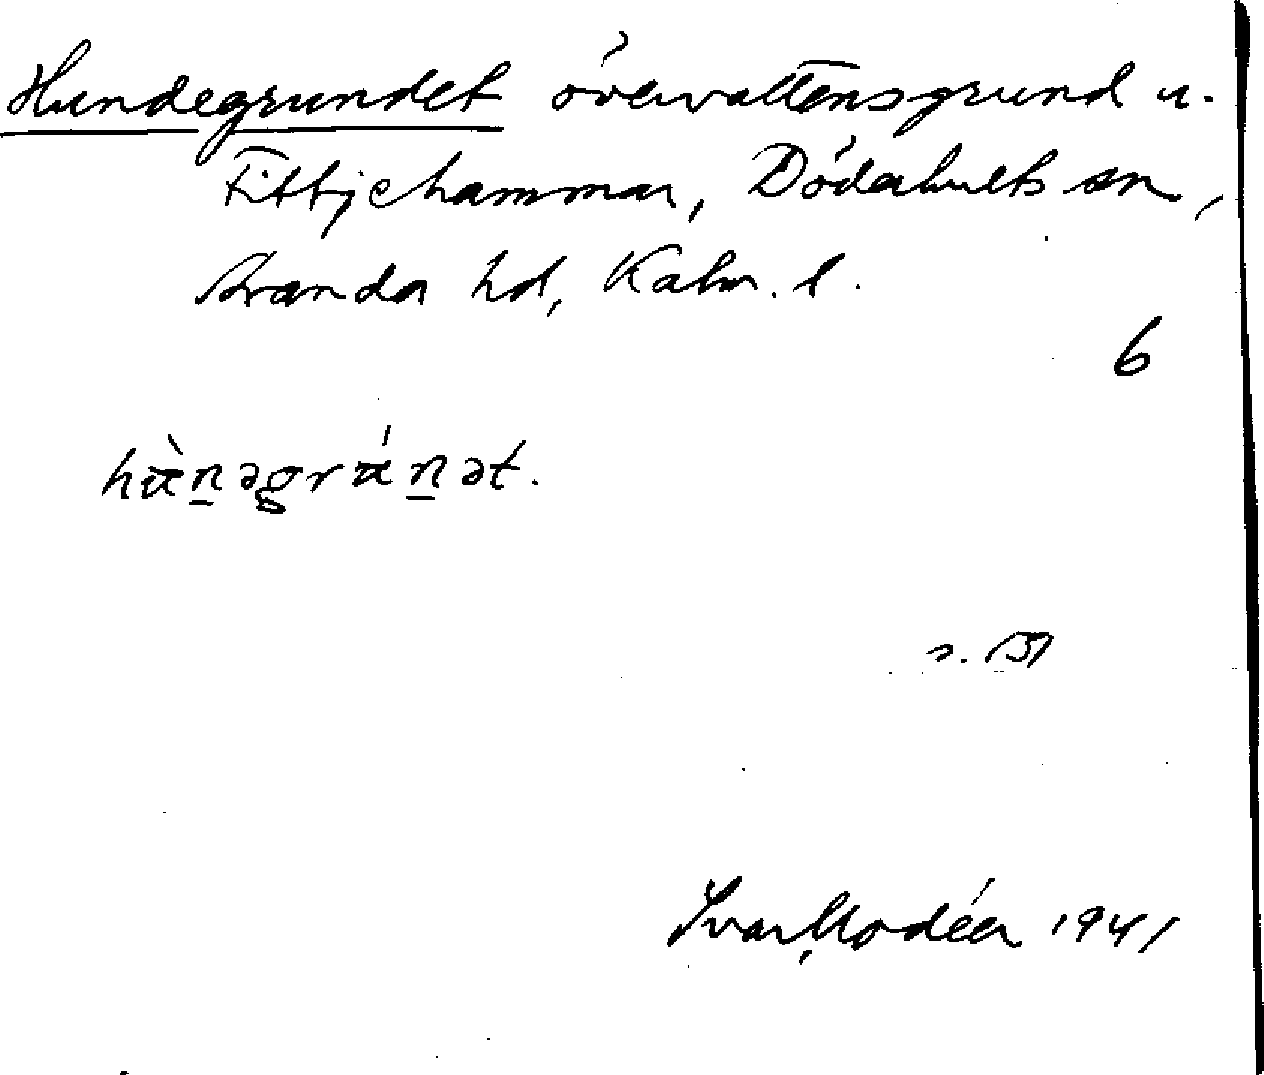 Hundegrundet övervattensgrund u.
Fittjehammar, Döderhults sn,
Stranda hd, Kalm. l.
6
hù̱nəgrú̱nət.
s. 151
Ivar Modéer 1941